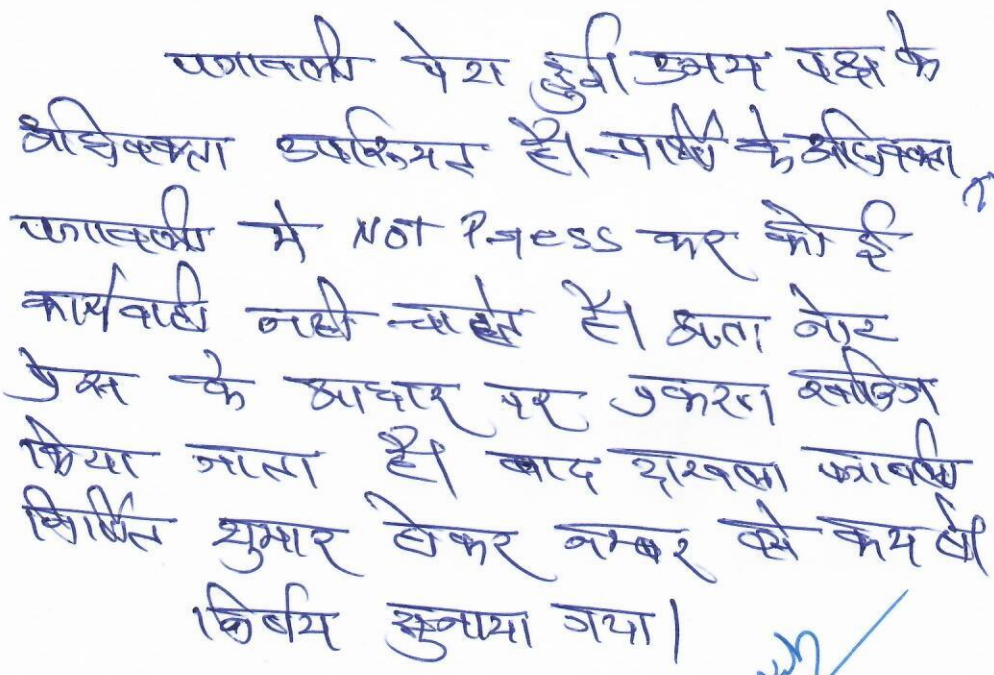 पत्रावली पेश हुई। उभय पक्ष के
अधिवक्ता उपस्थित है। प्रार्थी के अधिवक्ता
पत्रावली मे Not Press कर कोई
कार्यवाही नही चाहते है। अतः नोट
प्रेस के आधार पर प्रकरण खारिज
किया जाता है। बाद दाखला पत्रावली
निर्णित शुमार होकर नम्बर से कम हो।
निर्णय सुनाया गया।